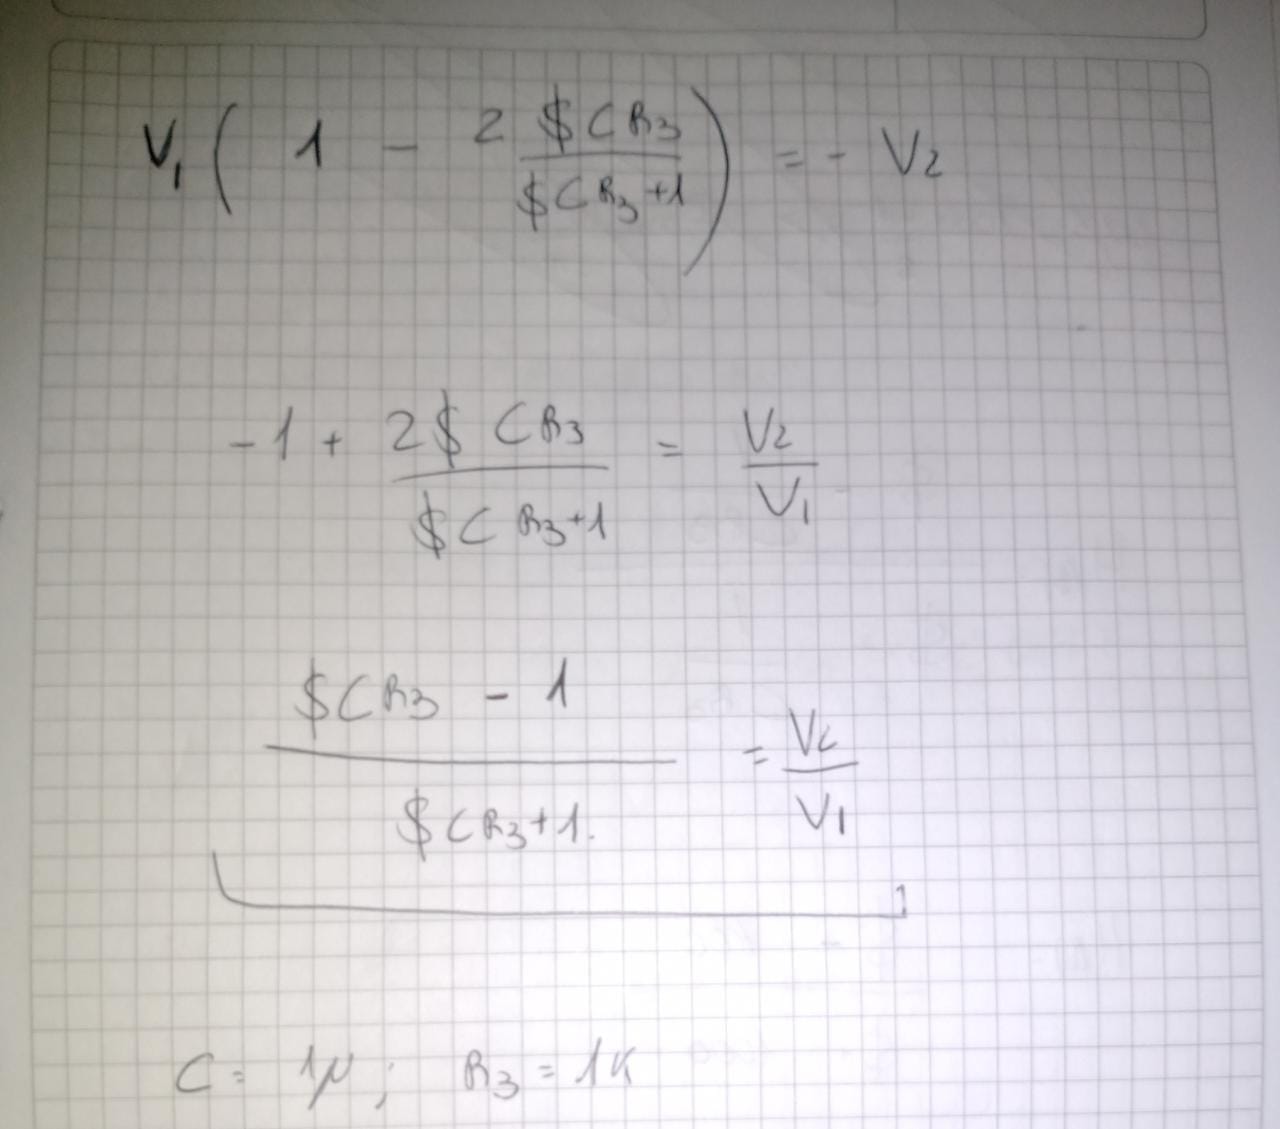 V₁ ( 1 - 2 $CR₃ / $CR₃+1 ) = - V₂
-1 + 2$CR₃ / $CR₃+1 = V₂ / V₁
$CR₃ - 1 / $CR₃+1. = V₂ / V₁
C = 1μ; R₃ = 1K